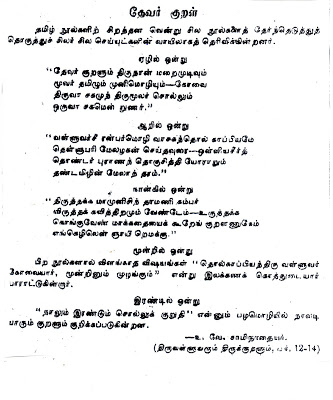 தேவர் குறள்
தமிழ் நூல்களிற் சிறந்தன வென்று சில நூல்களைத் தேர்ந்தெடுத்துத்
தொகுத்துச் சிலர் சில செய்யுட்களின் வாயிலாகத் தெரிவிக்கின்றனர்.
ஏழில் ஒன்று
"தேவர் குறளும் திருநான் மறைமுடிவும்
மூவர் தமிழும் முனிமொழியும்—கோவை
திருவா சகமும் திருமூலர் சொல்லும்
ஒருவா சகமென் றுணர்."
ஆறில் ஒன்று
"வள்ளுவர்சீ ரன்பர்மொழி வாசகந்தொல் காப்பியமே
தெள்ளுபரி மேலழகன் செய்தவுரை—ஒள்ளியசீர்த்
தொண்டர் புராணந் தொகுசித்தி யோராறும்
தண்டமிழின் மேலாந் தரம்."
நான்கில் ஒன்று
"திருத்தக்க மாமுனிசிந் தாமணி கம்பர்
விருத்தக் கவித்திறமும் வேண்டேம்—உருத்தக்க
கொங்குவேண் மாக்கதையைக் கூறேங் குறளணுகேம்
எங்கெழிலென் ஞாயி றெமக்கு."
மூன்றில் ஒன்று
பிற நூல்களால் விளங்காத விஷயங்கள் "தொல்காப்பியந்திரு வள்ளுவர்
கோவையார், மூன்றினும் முழங்கும்" என்று இலக்கணக் கொத்துடையார்
பாராட்டுகின்றார்.
இரண்டில் ஒன்று
"நாலும் இரண்டும் சொல்லுக் குறுதி" என்னும் பழமொழியில் நாலடி
யாரும் குறளும் குறிக்கப்படுகின்றன.
—உ. வே. சாமிநாதையர்.
(திருவள்ளுவரும் திருக்குறளும், பக். 12-14)